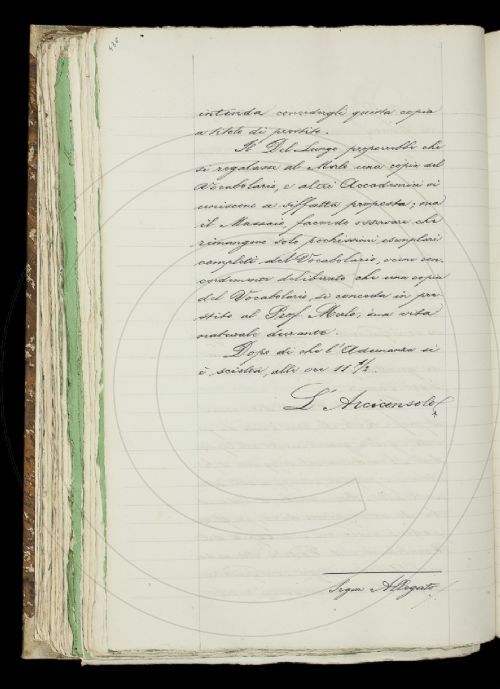 436
intenda concedergli questa copia
a titolo di prestito.
Il Del Lungo proporrebbe che
si regalasse al Merlo una copia del
Vocabolario, e altri Accademici si
uniscono a siffatta proposta; ma
il Massaio, facendo osservare che
rimangono solo pochissimi esemplari
completi del Vocabolario, viene con-
cordemente deliberato che una copia
del Vocabolario, si conceda in pre-
stito al Prof. Merlo, sua vita
naturale durante.
Dopo di che l'Adunanza si
è sciolta, alle ore 11 1/2.
L'Arciconsolo
Segue Allegato